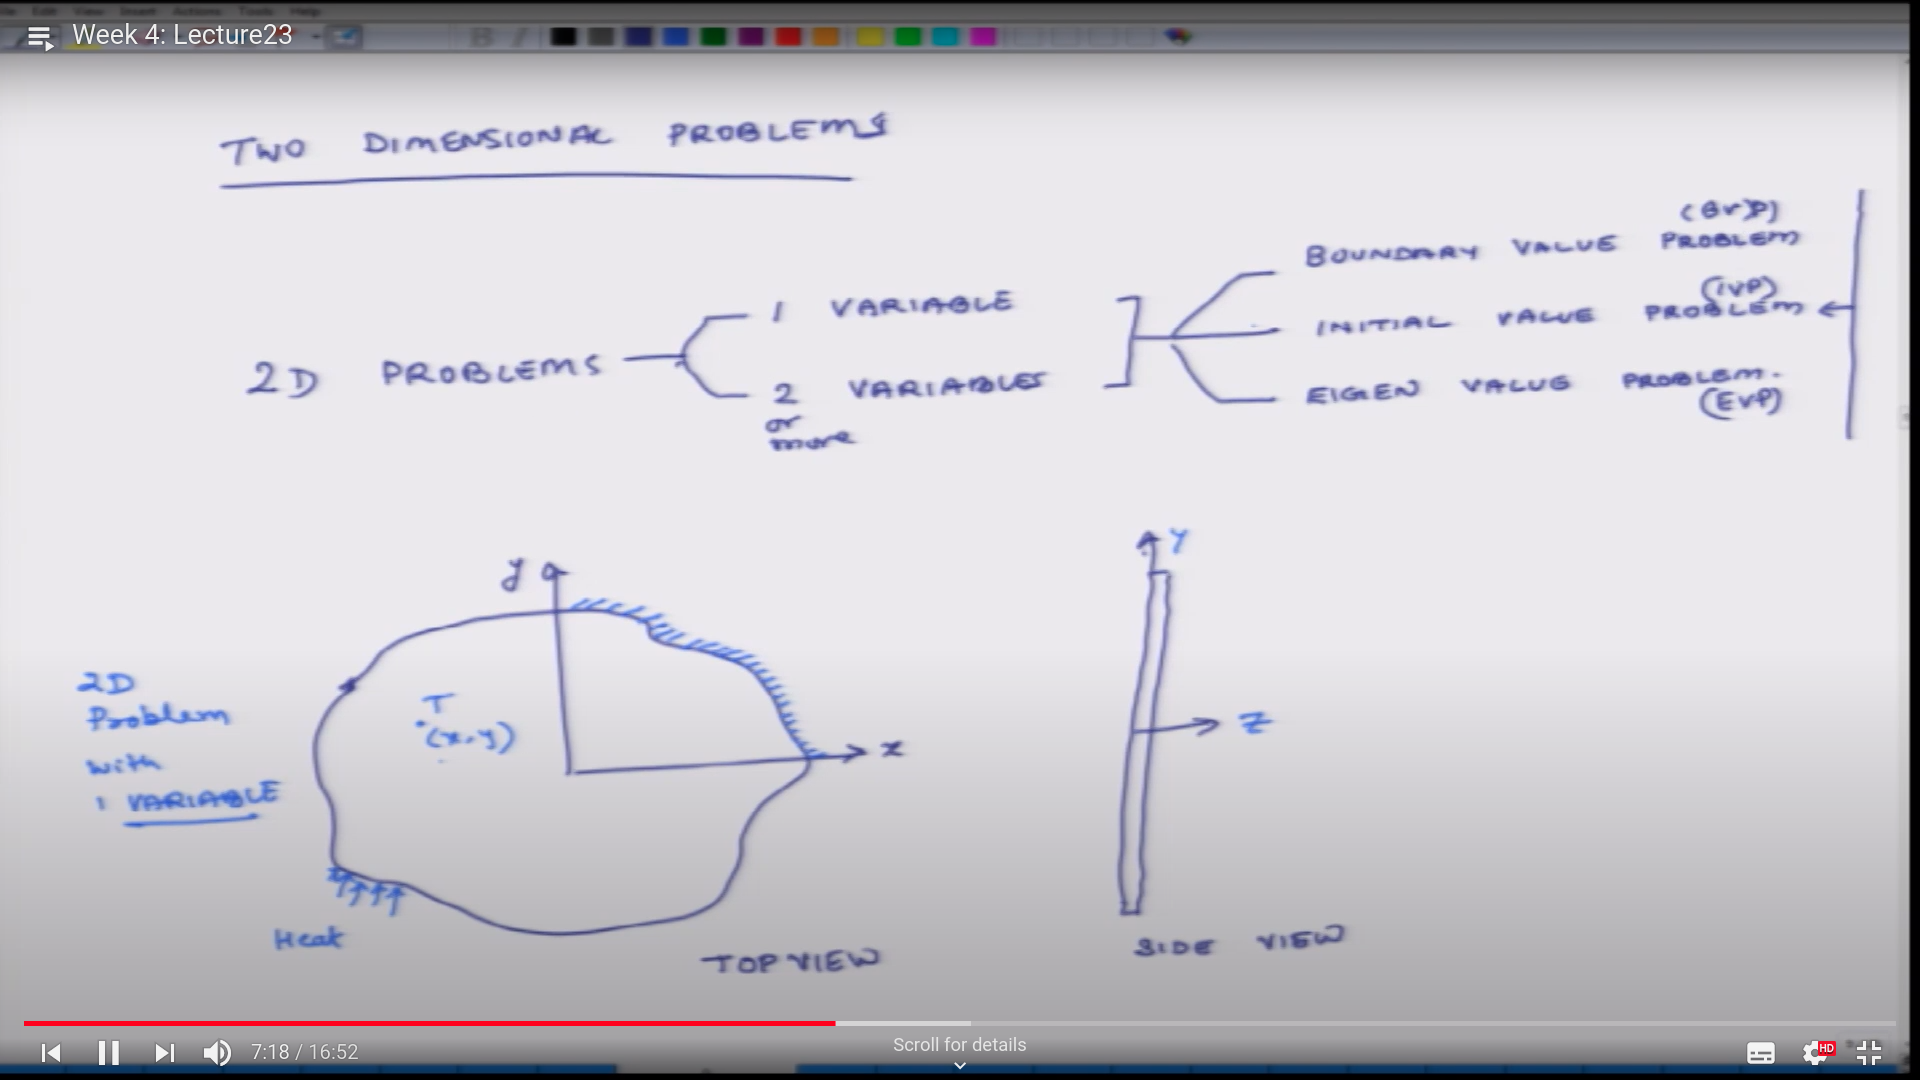 File Edit View Insert Actions Tools Help
Week 4: Lecture23
TWO DIMENSIONAL PROBLEMS
2D PROBLEMS
1 VARIABLE
2 VARIABLES
or
more
(BVP)
BOUNDARY VALUE PROBLEM
(IVP)
INITIAL VALUE PROBLEM
EIGEN VALUE PROBLEM.
(EVP)
y
x
T
(x,y)
2D
Problem
with
1 VARIABLE
Heat
TOP VIEW
Y
Z
SIDE VIEW
7:18 / 16:52
Scroll for details
HD